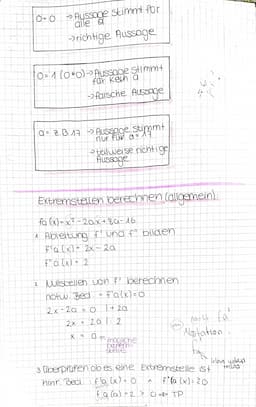 0=0 → Aussage stimmt für
alle a
→ richtige Aussage
0=1 (0≠0) → Aussage stimmt
für kein a
→ falsche Aussage
a = z.B. 17 → Aussage stimmt
nur für a=17
→ teilweise richtige
Aussage
Extremstellen berechnen (allgemein)
fa(x)=x²-2ax+8a-16
1. Ableitung f' und f'' bilden
f'a(x)= 2x-2a
f''a(x)= 2
2. Nullstellen von f' berechnen
notw. Bed.: f'a(x)=0
2x-2a=0 |+2a
2x = 2a |:2
x = a → mögliche
Extrem-
stelle
Notation
3. Überprüfen ob es eine Extremstelle ist
hinr. Bed.: f'a(x)=0 ∧ f''a(x)≠0
f''a(a)=2 > 0 → TP